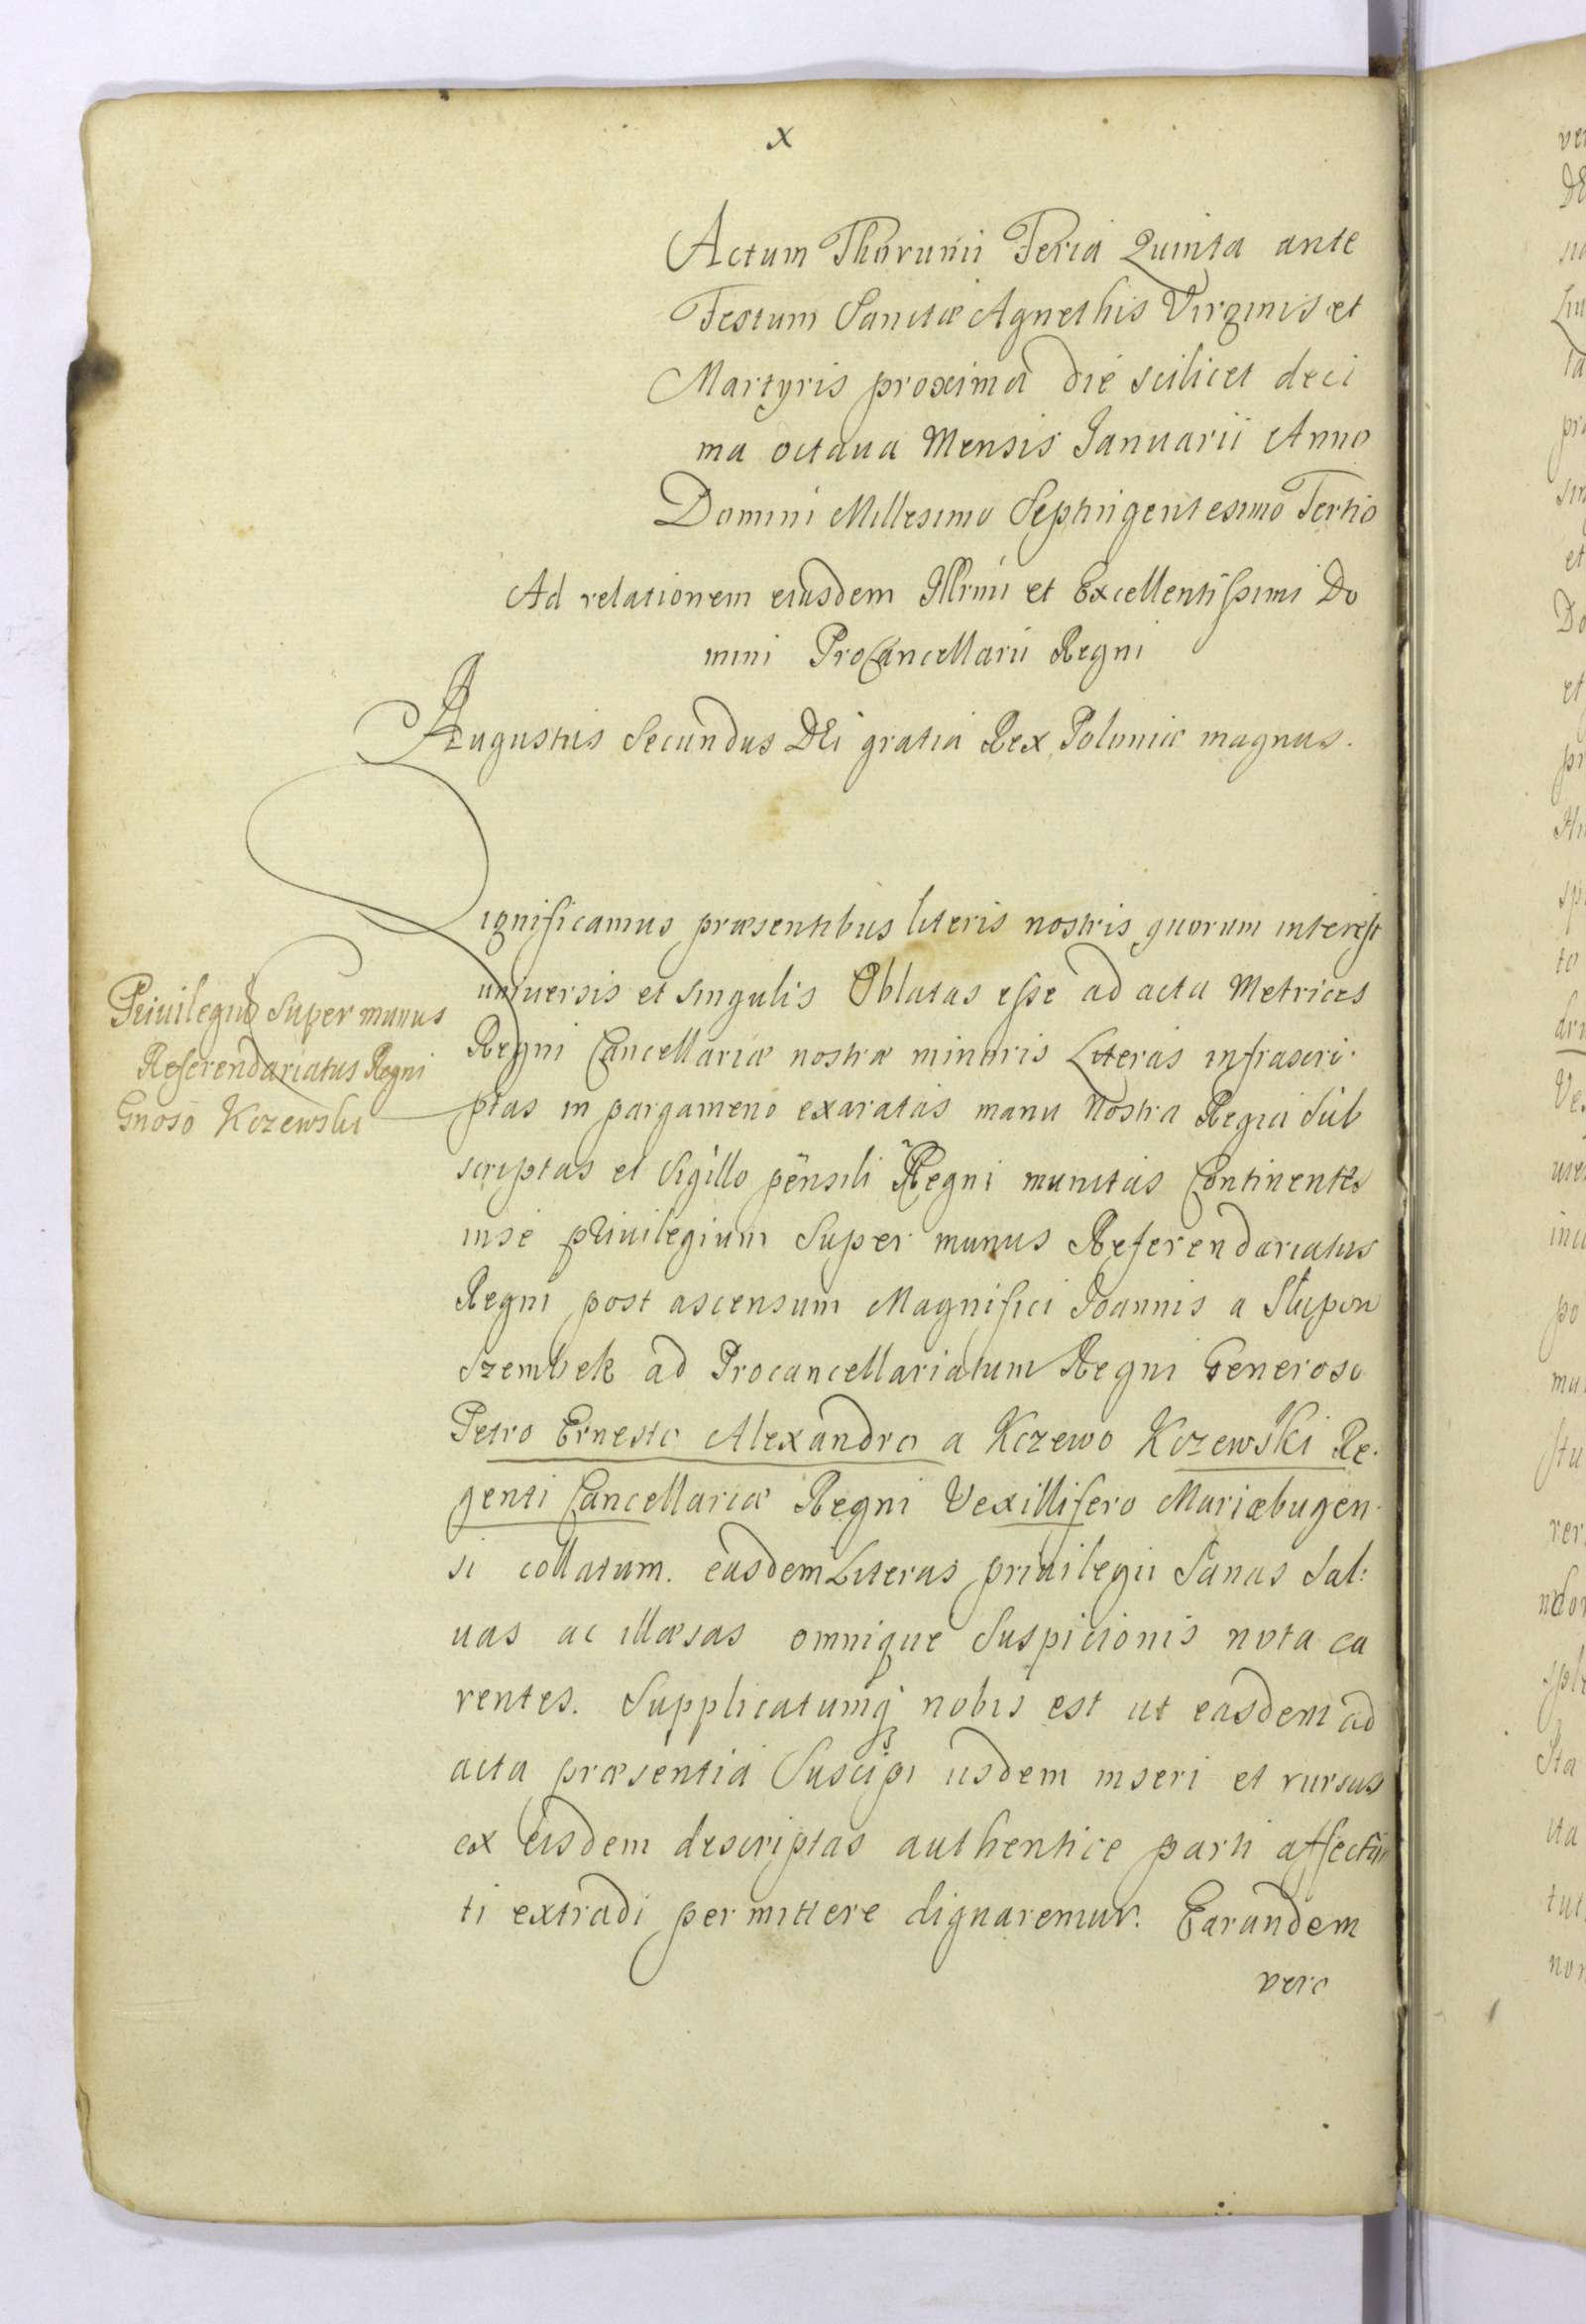 x
Actum Thorunii Feria Quinta ante
Festum Sanctæ Agnethis Virginis et
Martyris proxima die scilicet deci
ma octava Mensis Januarii Anno
Domini Millesimo Septingentesimo Tertio
Ad relationem eiusdem Illrmi et Excellentissimi Do
mini ProCancellarii Regni
Augustus Secundus DEi gratia Rex Poloniæ magnus.
Significamus præsentibus literis nostris quorum interest
universis et singulis Oblatas esse ad acta Metrices
Privilegiū super munus
Referendariatus Regni
Gnoso Kczewski
Regni Cancellariæ nostræ minoris Literas infrascri:
ptas in pargameno exaratas manu Nostra Regia sub
scriptas et Sigillo pensili Regni munitas Continentes
inse privilegium Super munus Referendariatus
Regni post ascensum Magnifici Joannis a Słupow
Szembek ad Procancellariatum Regni Generoso
Petro Ernesto Alexandro a Kczewo Kczewski Re.
genti Cancellariæ Regni Vexillifero Mariæbugen.
si collatum. easdem Literas privilegii Sanas Sal:
uas ac illæsas omnique Suspicionis nota ca
rentes. Supplicatumq; nobis est ut easdem ad
acta præsentia Suscipi iisdem inseri et rursus
ex eisdem descriptas authentice parti affectan
ti extradi permittere dignaremur. Earundem
vero